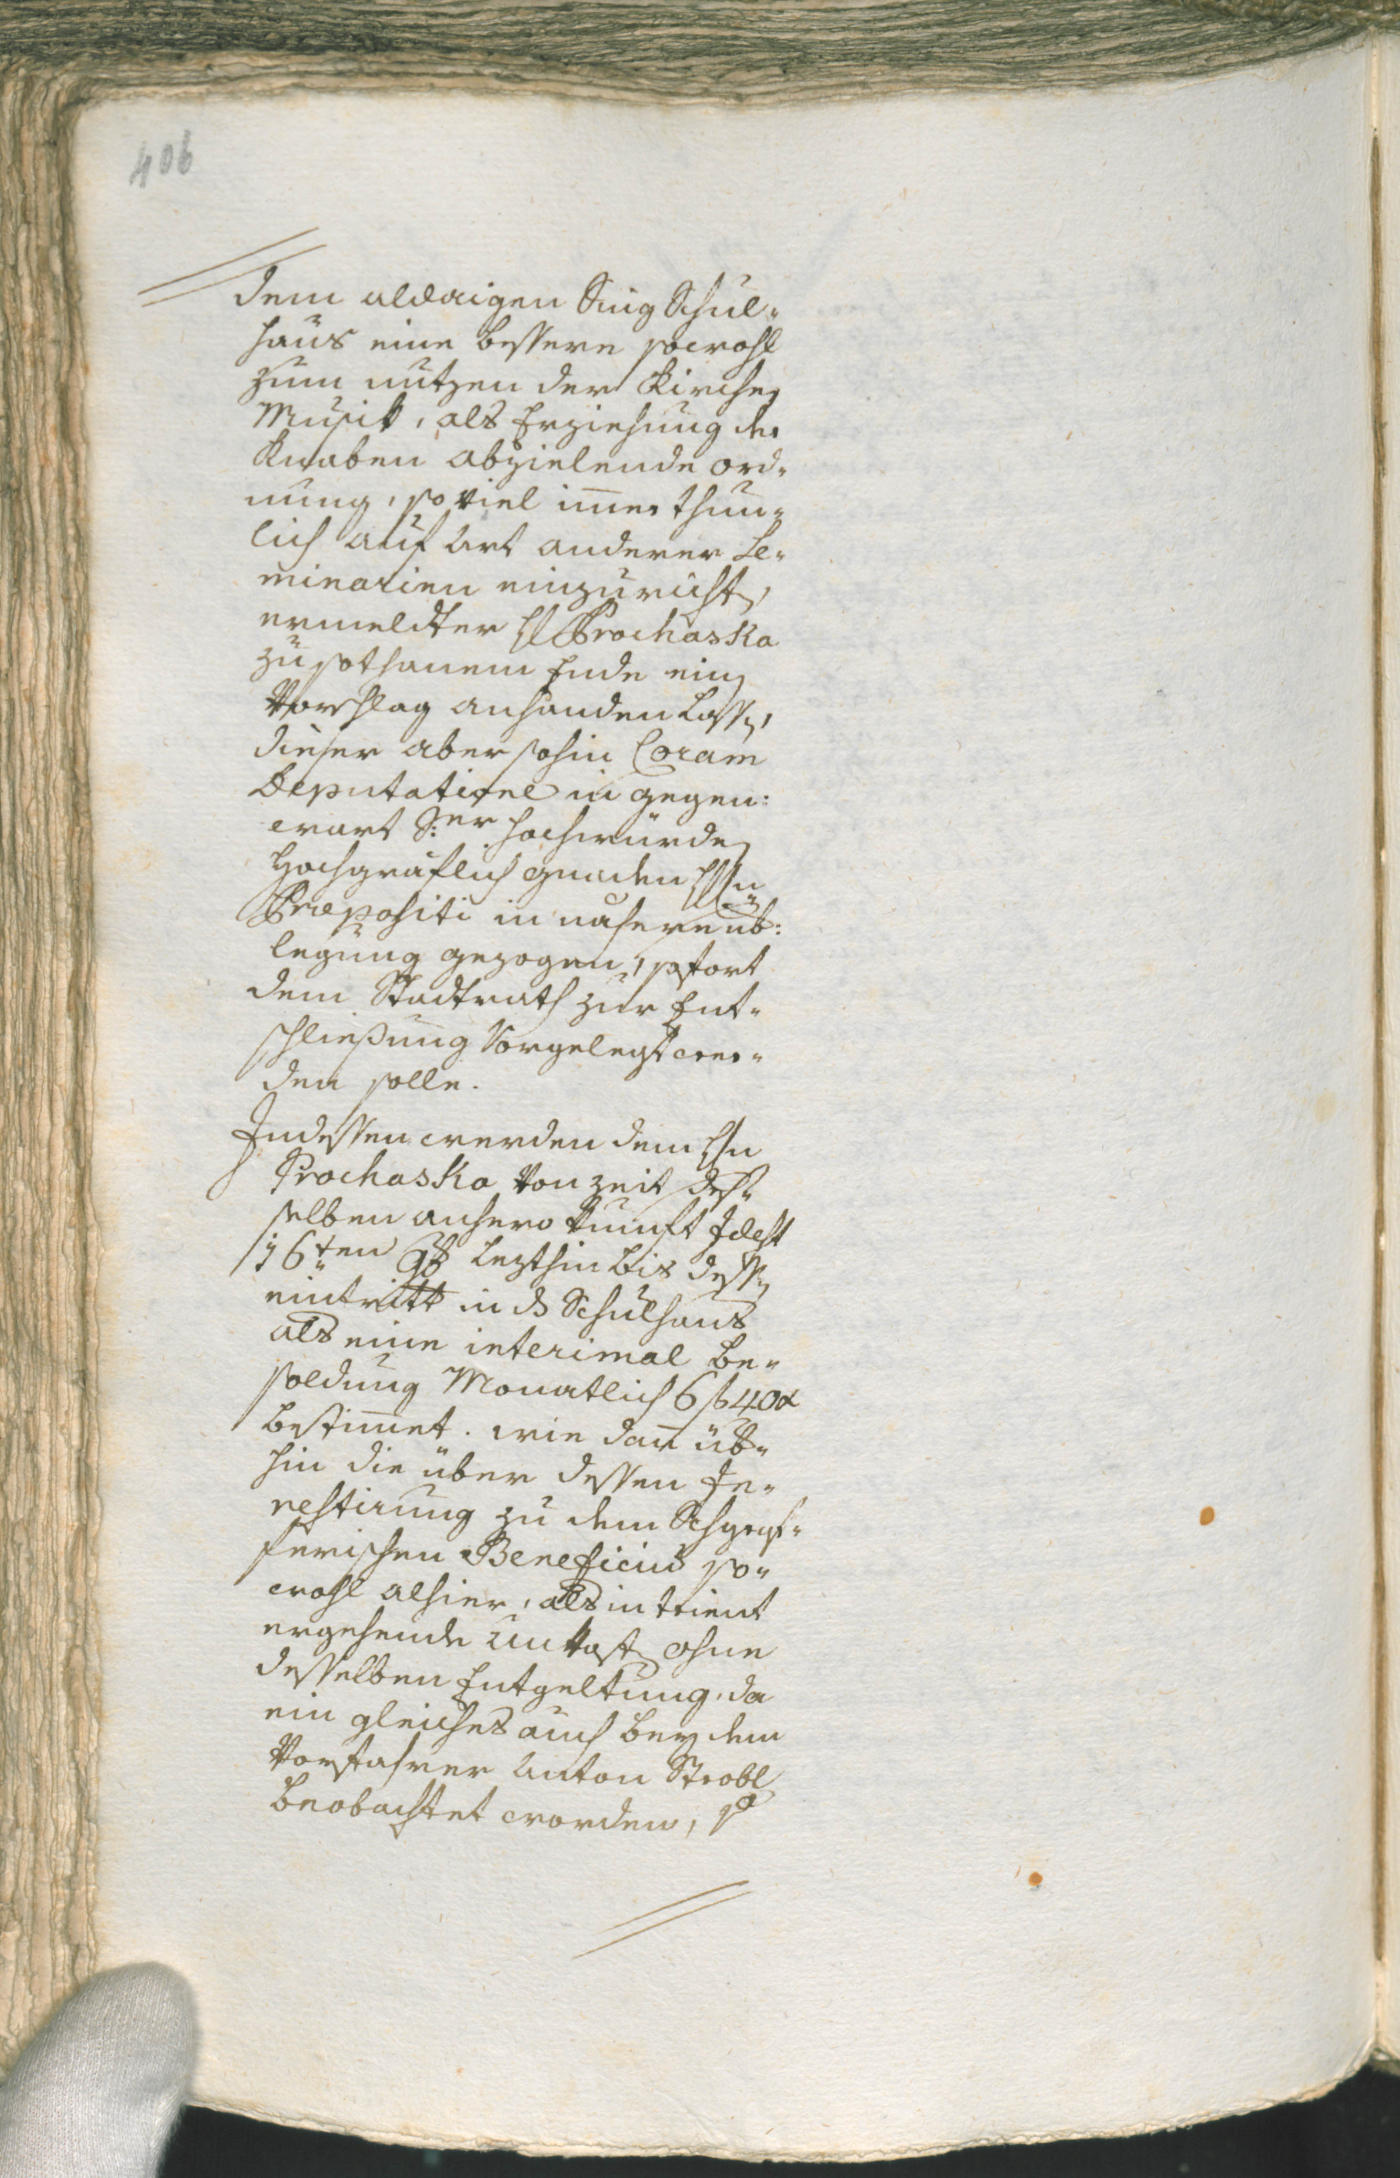 406
dem aldaigen Sing Schul-
haus eine bessere sowohl
zum nutzen der Kirchen
Musik, als Erziehung der
Knaben abzielende ord-
nung, so viel im̅er thun-
lich auf art anderer Se-
minarien einzurichten,
ermeldter H Prochaska
zu sothanem Ende einen
Vorschlag anhanden lassen,
dieser aber sohin Coram
Deputatione in gegen:
wart S:er hochwürden
Hochgräflich gnaden Herrn
Præpositi in nähere üb:
legung gezogen, sofort
dem Stadtrath zur Ent-
schließung Vorgelegt wer-
den solle.
Indessen werden dem Hn
Prochaska Von zeit des-
selben anhero Kunft Idest
16ten 9b lezthin bis dessen
eintritt in ds Schulhaus
als eine interimal be-
soldung Monatlich 6 f 40 x
bestim̅et. wie dan̅ üb-
hin die über dessen In-
vestirung zu dem
ferischen Beneficium so-
wohl alhier, als in trient
ergehende unkosten ohne
desselben Entgeltung, da
ein gleiches auch bey dem
Vorfahrer Anton Strobl
beobachtet worden,